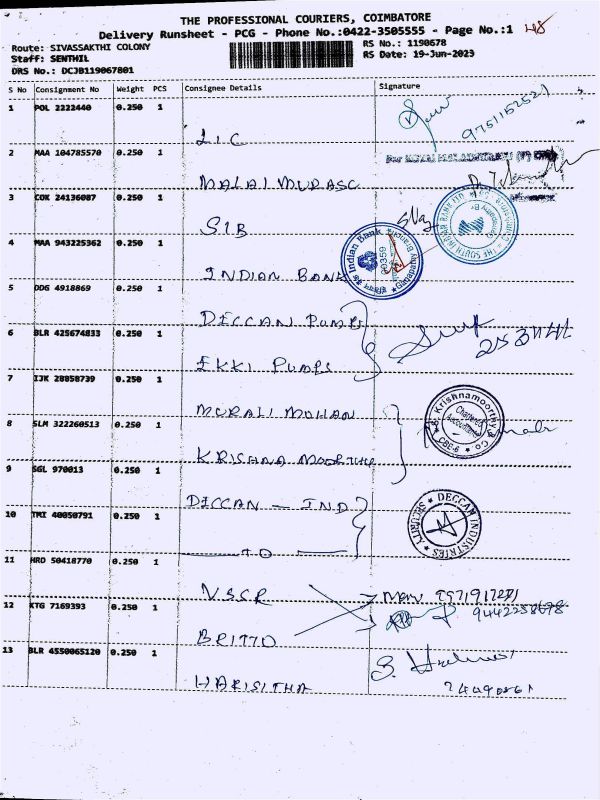 THE PROFESSIONAL COURIERS, COIMBATORE
Delivery Runsheet - PCG - Phone No.:0422-3505555 - Page No.:1 48
Route: SIVASSAKTHI COLONY RS No.: 1190678
Staff: SENTHIL RS Date: 19-Jun-2023
DRS No.: DCJB119067801
S No Consignment No Weight PCS Consignee Details Signature
1 POL 2222440 0.250 1
LIC 9751152521
2 MAA 104785570 0.250 1
MALAI MURASC
3 COK 24136087 0.250 1
SIB
THE SOUTH INDIAN BANK LTD
4 MAA 943225362 0.250 1
INDIAN BANK
Indian Bank
00359
Ganapathy
5 DDG 4918869 0.250 1
DECCAN PUMPS
6 BLR 425674833 0.250 1
EKKI PUMPS
7 IJK 28858739 0.250 1
MURALI MOHAN
8 SLM 322260513 0.250 1
KRISHNA MOORTHY
Krishnamoorthy & Co
Chartered
Accountants
CBE-6
9 SGL 970013 0.250 1
DECCAN - IND
DECCAN INDUSTRIES
SECURITY
10 TMI 40050791 0.250 1
— TO —
11 HRD 50418770 0.250 1
VSCR
12 KTG 7169393 0.250 1
BRITTO
13 BLR 4550065120 0.250 1
HARISITHA